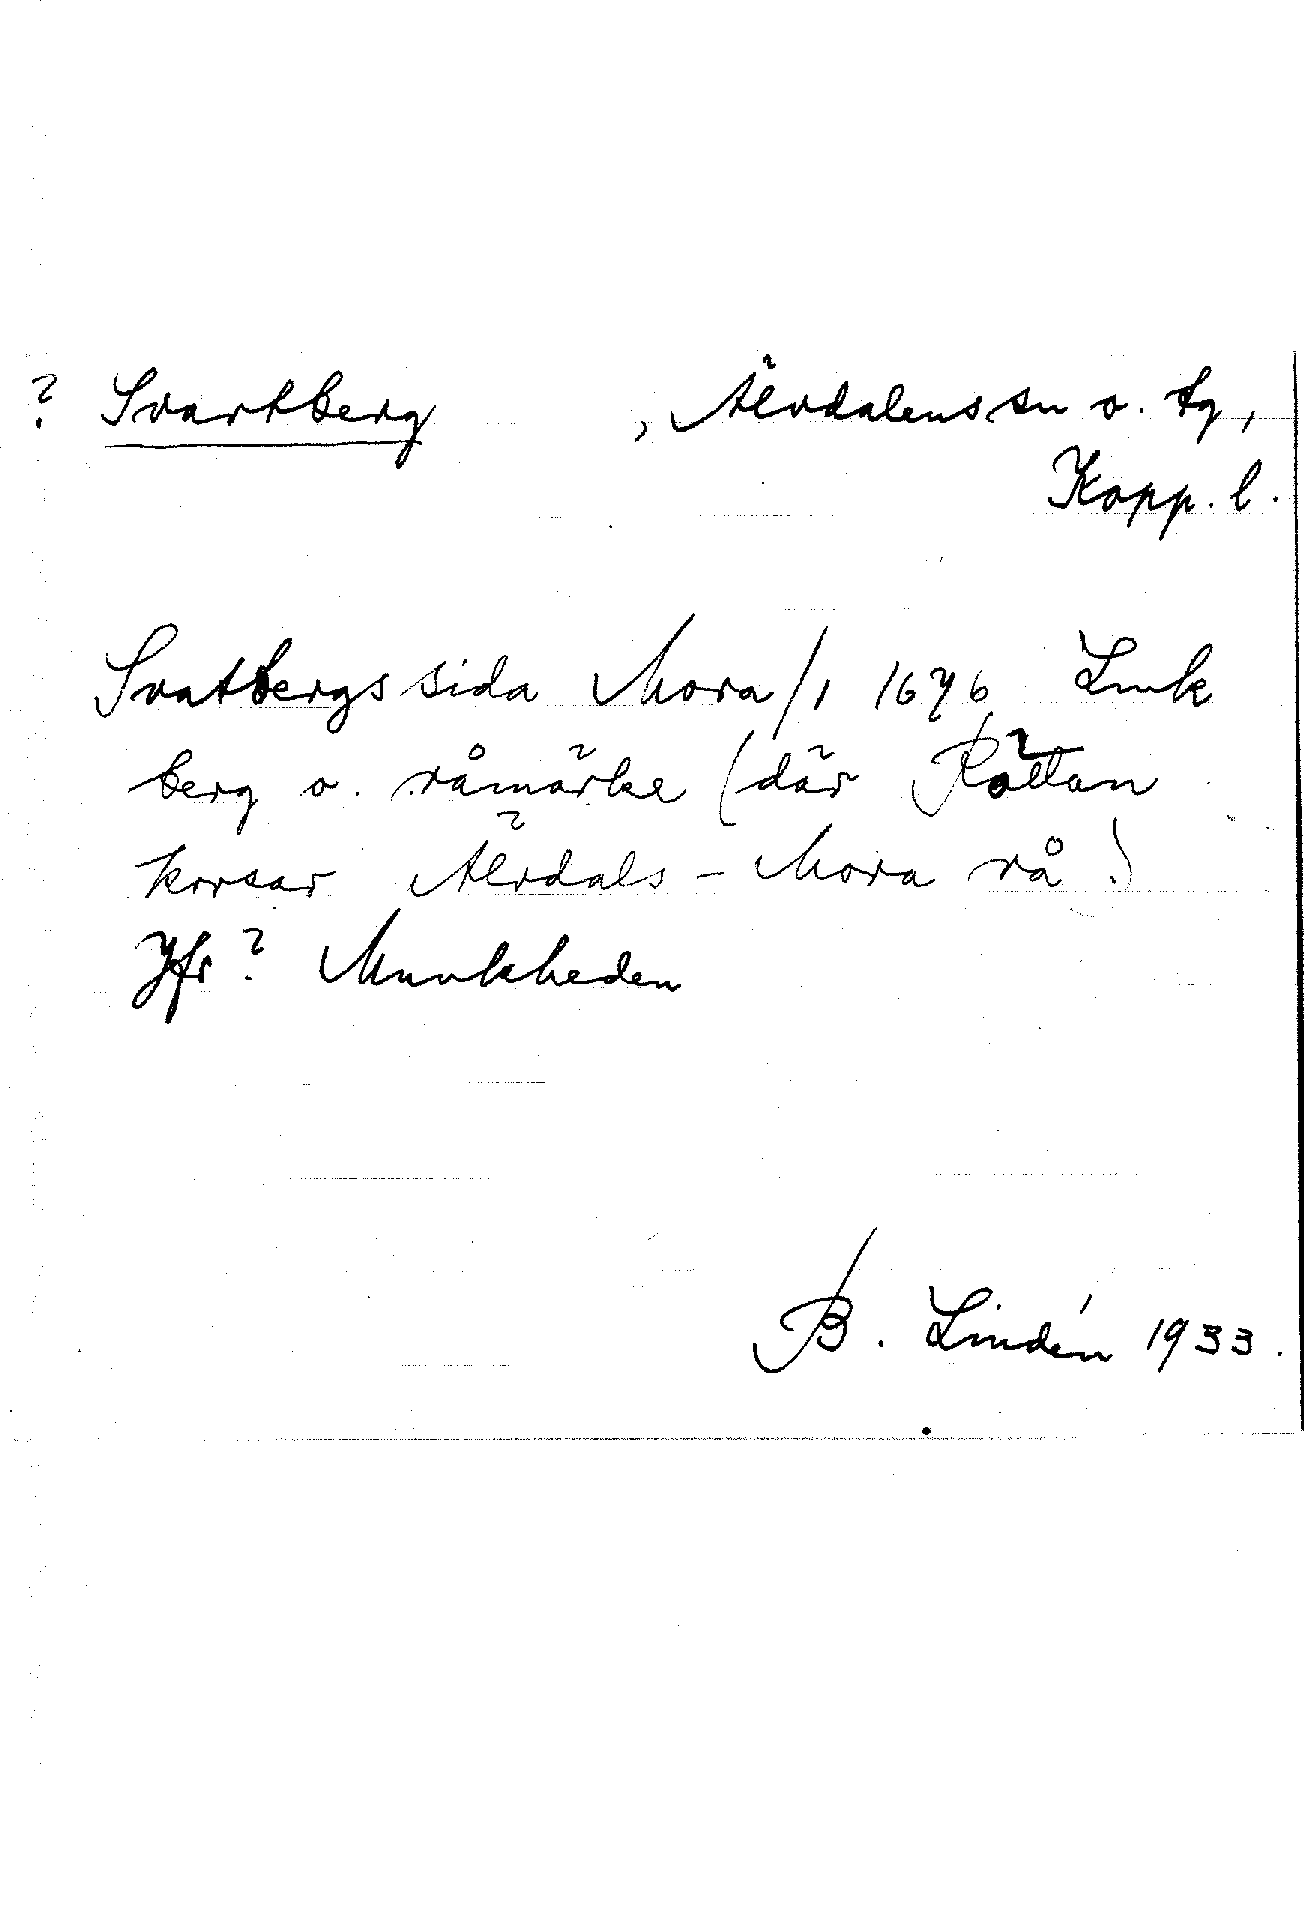 ? Svartberg , Älvdalens sn o. tg,
Kopp. l.
Svatbergssida Mora/1 1676 Lmk
berg o. råmärke (där Rältan
korsar Älvdals - Mora rå!)
Jfr? Munkheden
B. Lindén 1933.